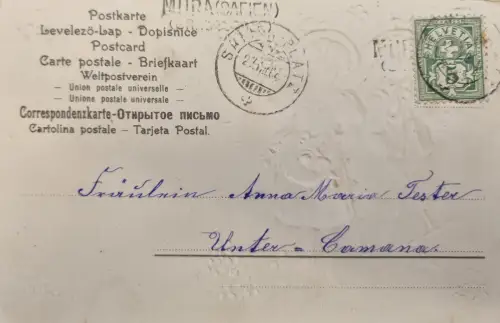 MURA (SAFIEN)
Postkarte
Levelező-Lap - Dopisnice
Postcard
Carte postale - Briefkaart
Weltpostverein
- Union postale universelle -
- Unione postale universale -
Correspondenzkarte-Открытое письмо
Cartolina postale - Tarjeta Postal.
PLATZ
HELVETIA
5
Fräulein Anna Maria Tester
Unter-Camana.